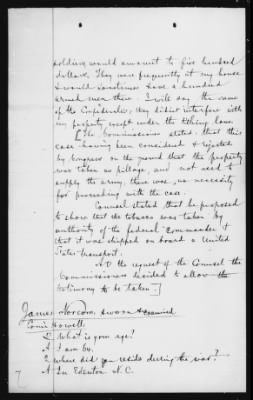 soldiers, would amount to five hundred
dollars. They were frequently at my house
& would sometimes have a hundred
around over there. I will say the same
of the Confederates; they didn't interfere with
my property except under the tithing laws.
[The Commissioners stated that this
case having been considered & rejected
by Congress on the ground that the property
was taken as pillage, and not used to
supply the army, there was no necessity
for proceeding with the case.
Counsel stated that he proposed
to show that the tobacco was taken by
authority of the federal Commander &
that it was shipped on board a United
States transport.
At the request of the Counsel the
Commissioners decided to allow the
testimony to be taken.]
James Norcom, sworn & examined.
Comr Howell:
Q What is your age?
A I am 64.
Q Where did you reside during the war?
A In Edenton N.C.
7